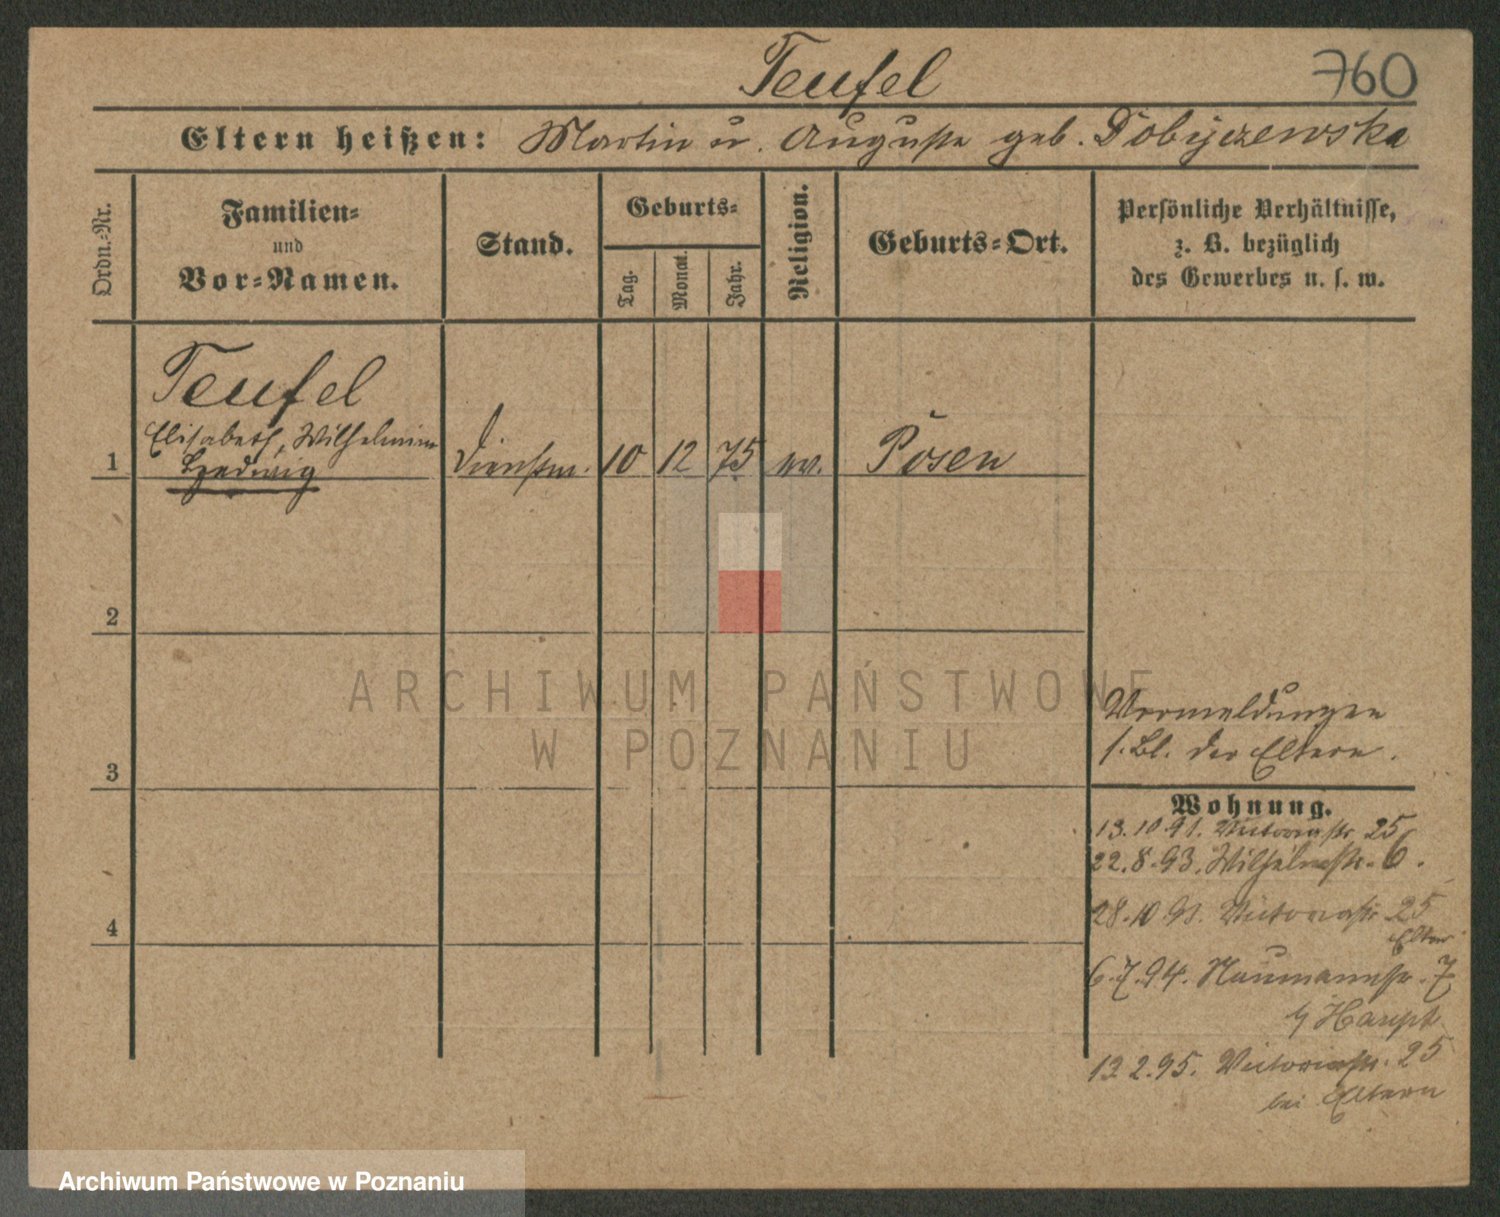 Teufel
760
Eltern heißen: Martin u. Auguste geb. Dobijczewska
Ordn.-Nr.
Familien-
und
Vor-Namen.
Stand.
Geburts-
Tag.
Monat.
Jahr.
Religion.
Geburts-Ort.
Persönliche Verhältnisse,
z. B. bezüglich
des Gewerbes u. s. w.
Teufel
Elisabeth, Wilhelmine
Hedwig
1
Dienstm. 10 12 75 ev. Posen
2
3
4
Vermeldungen
s. Bl. der Eltern.
Wohnung.
13.10.91. Victoriastr 25
22.8.93. Wilhelmstr. 6.
28.10.93. Victoriastr 25
Eltern
6.7.94. Naumannstr. 7
b/ Haupt
13.2.95. Victoriastr. 25
bei Eltern
ARCHIWUM PAŃSTWOWE
W POZNANIU
Archiwum Państwowe w Poznaniu